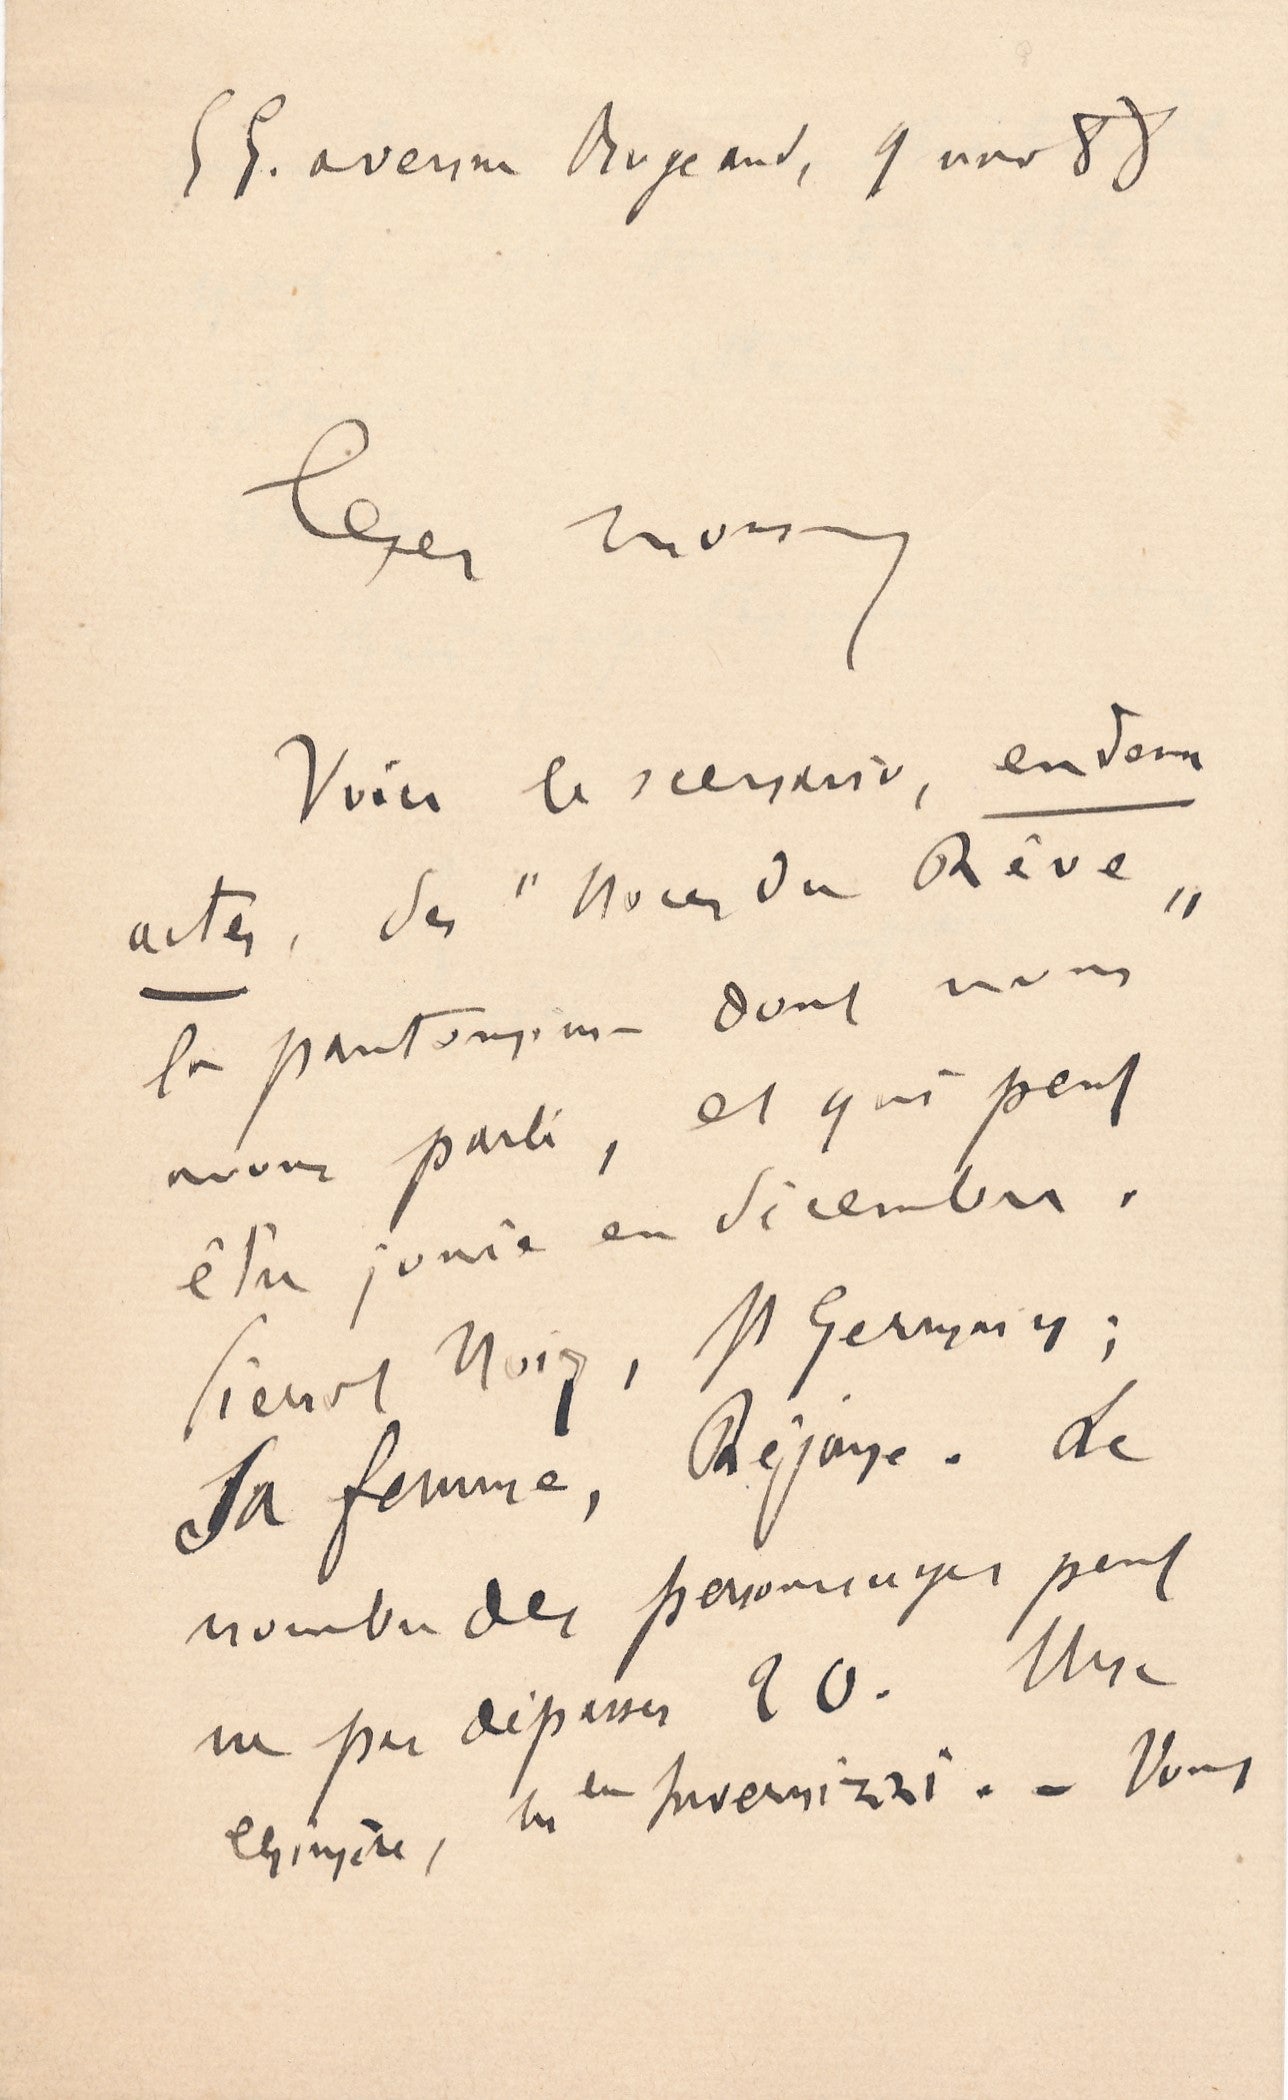 55. avenue Bugeaud, 9 nov 88
Cher
Voici le scenario, en deux
actes, des "Noces du Rêve"
la pantomime dont nous
avons parlé, et qui peut
être jouée en décembre.
Pierrot Noir, St Germain;
Sa femme, Réjane. Le
nombre des personnages peut
ne pas dépasser 20. Une
chimère, Invernizzi. - Vous